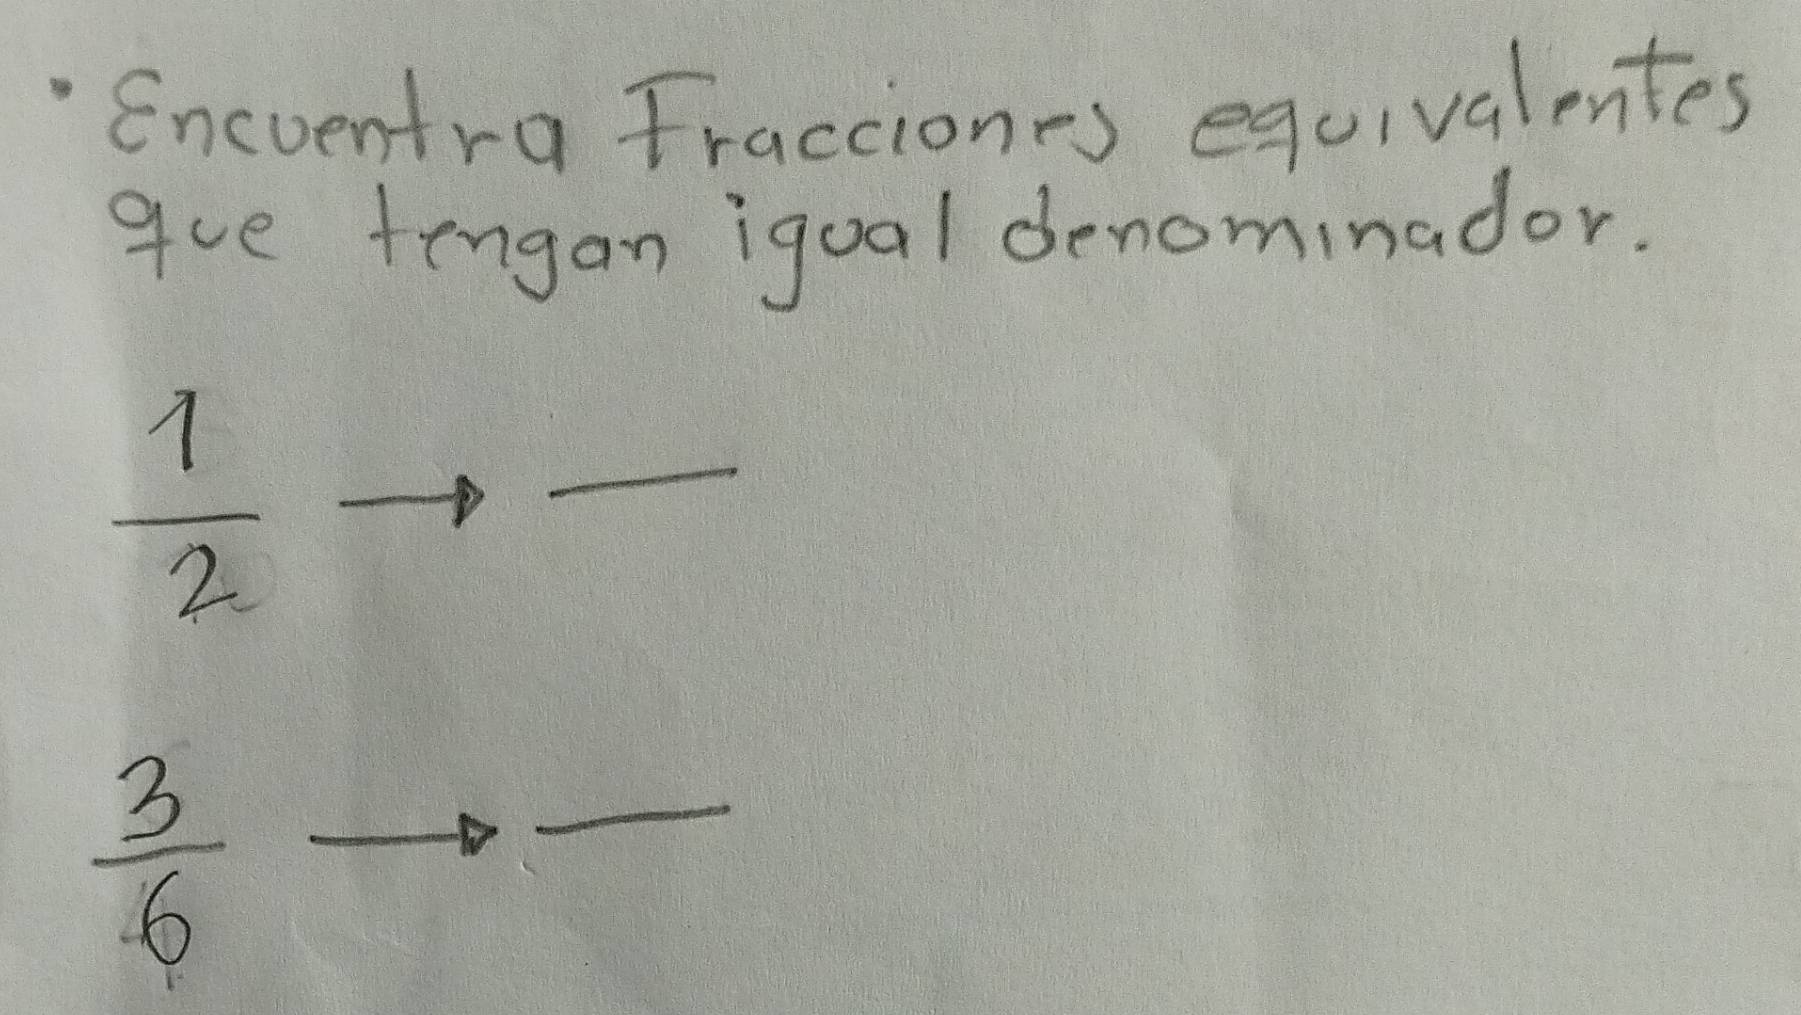 · Encuentra Fracciones equivalentes
que tengan igual denominador.
1
2
3
6